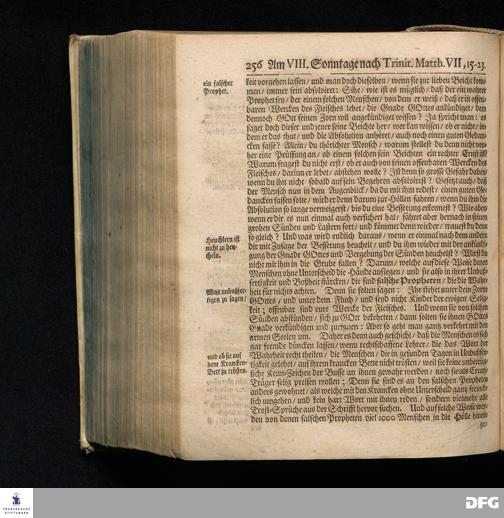 256 Am VIII. Sonntage nach Trinit. Matth. VII, 15-23.
ein falscher
Prophet.
keit vorgehen lassen / und man doch dieselben / wenn sie zur lieben Beicht kom-
men / immer sein absolviret: Sihe / wie ist es müglich / daß der ein wahrer
Prophet sey / der einem solchen Menschen / von dem er weiß / daß er in offen-
baren Wercken des Fleisches lebet / die Gnade GOttes ankündiget / den
dennoch GOtt seinen Zorn wil angekündiget wissen? Ja sprichst man: es
saget doch dieser und jener seine Beichte her / wer kan wissen / ob er nicht / in-
dem er das thut / und die Absolution anhöret / auch noch einen guten Gedan-
cken fasse? Allein / du thörichter Mensch / warum stellest du denn nicht vor-
her eine Prüffung an / ob einem solchen sein Beichten ein rechter Ernst ist?
Warum fragest du nicht erst / ob er auch von seinen offenbaren Wercken des
Fleisches / darinn er lebet / abstehen wolle? Ist denn so grosse Gefahr dabey /
wenn du ihn nicht sobald auf sein Begehren absolvirest? Gesetzt auch / daß
der Mensch nun in dem Augenblick / da du mit ihm redest / einen guten Ge-
dancken fassen solte / wird er denn darum zur Höllen fahren / wenn du ihm die
Absolution so lange verweigerst / bis du eine Besserung erkennest? Wie aber /
wenn er die es nun einmal auch versichert hat / fähret aber hernach in seinen
groben Sünden und Lastern fort / und kömmt denn wieder / waußt du denn
so gleich? Und was wird endlich daraus / wenn er einmal nach dem andern
Heuchlern ist
nicht zu heu-
cheln.
dir mit Zusage der Besserung heuchelt / und du ihm wieder mit der ankündi-
gung der Gnade GOttes und Vergebung der Sünden heuchelst? Wirst du
nicht mit ihm in die Grube fallen? Darum / welche auf diese Weise denen
Menschen ohne Unterscheid die Hände auflegen / und sie also in ihrer Unbuß-
fertigkeit und Boßheit stärcken / die sind falsche Propheten / die die Wahr-
Was unbußfer-
tigen zu sagen /
heit für nichts achten. Denn sie solten sagen: Ihr stehet unter dem Zorne
GOttes / und unter dem Fluch / und seyd nicht Kinder der ewigen Selig-
keit; offenbar sind eure Wercke des Fleisches. Und wenn sie von solchen
Sünden abstünden / sich zu GOtt bekehrten / dann solten sie ihnen GOttes
Gnade verkündigen und zueignen: Aber so geht man gantz verkehrt mit den
armen Seelen um. Daher es denn auch geschicht / daß die Menschen es sich
gar fremde düncken lassen / wenn rechtschaffene Lehrer / die das Wort der
und ob sie auf
dem Krancken-
Bett zu trösten.
Wahrheit recht theilen / die Menschen / die in gesunden Tagen in Unbußfer-
tigkeit gelebet / auf ihrem krancken Bette nicht trösten / weil sie keine unbetrüg-
liche Kenn-Zeichen der Busse an ihnen gewahr werden / noch sie als Creutz-
Träger selig preisen wollen; Denn sie sind es an den falschen Propheten
anders gewohnet / als welche mit den Krancken ohne Unterscheid gantz freund-
lich umgehen / und kein hart Wort mit ihnen reden / sondern vielmehr alle
Trost-Sprüche aus der Schrifft hervor suchen. Und auf solche Weise wer-
den von denen falschen Propheten viel 1000 Menschen in die Hölle hinein
FRANCKESCHE
STIFTUNGEN
DFG